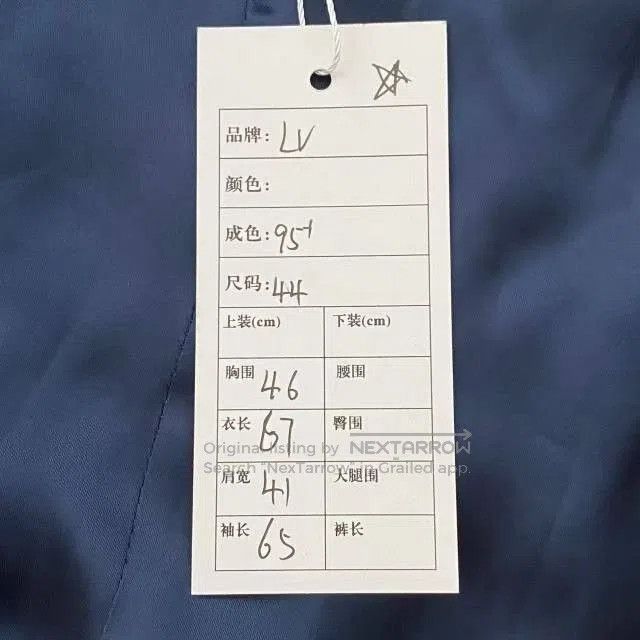 品牌: LV
颜色:
成色: 95+
尺码: 44
上装(cm) 下装(cm)
胸围 46 腰围
衣长 67 臀围
Original listing by NEXTARROW
Search "NexTarrow" in Grailed app.
肩宽 41 大腿围
袖长 65 裤长